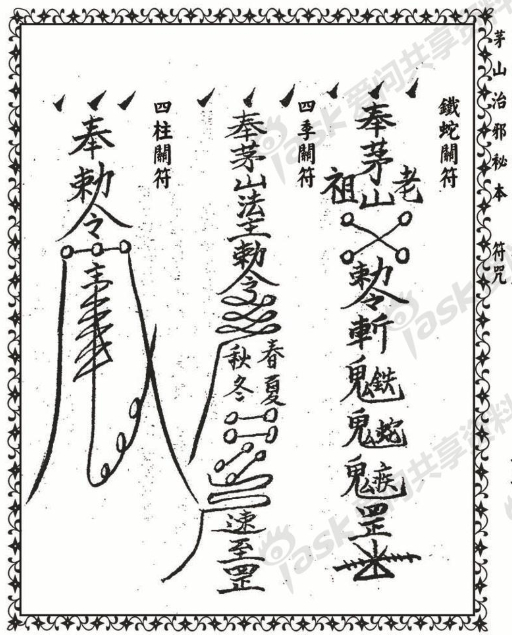 茅山治邪秘本 符咒
鐵蛇關符
奉茅山老祖
勅令斬
鬼鉄
鬼蛇
鬼疾
罡
四季關符
奉茅山法主勅令
春夏
秋冬
速至罡
四柱關符
奉勅令
iask爱问共享资料